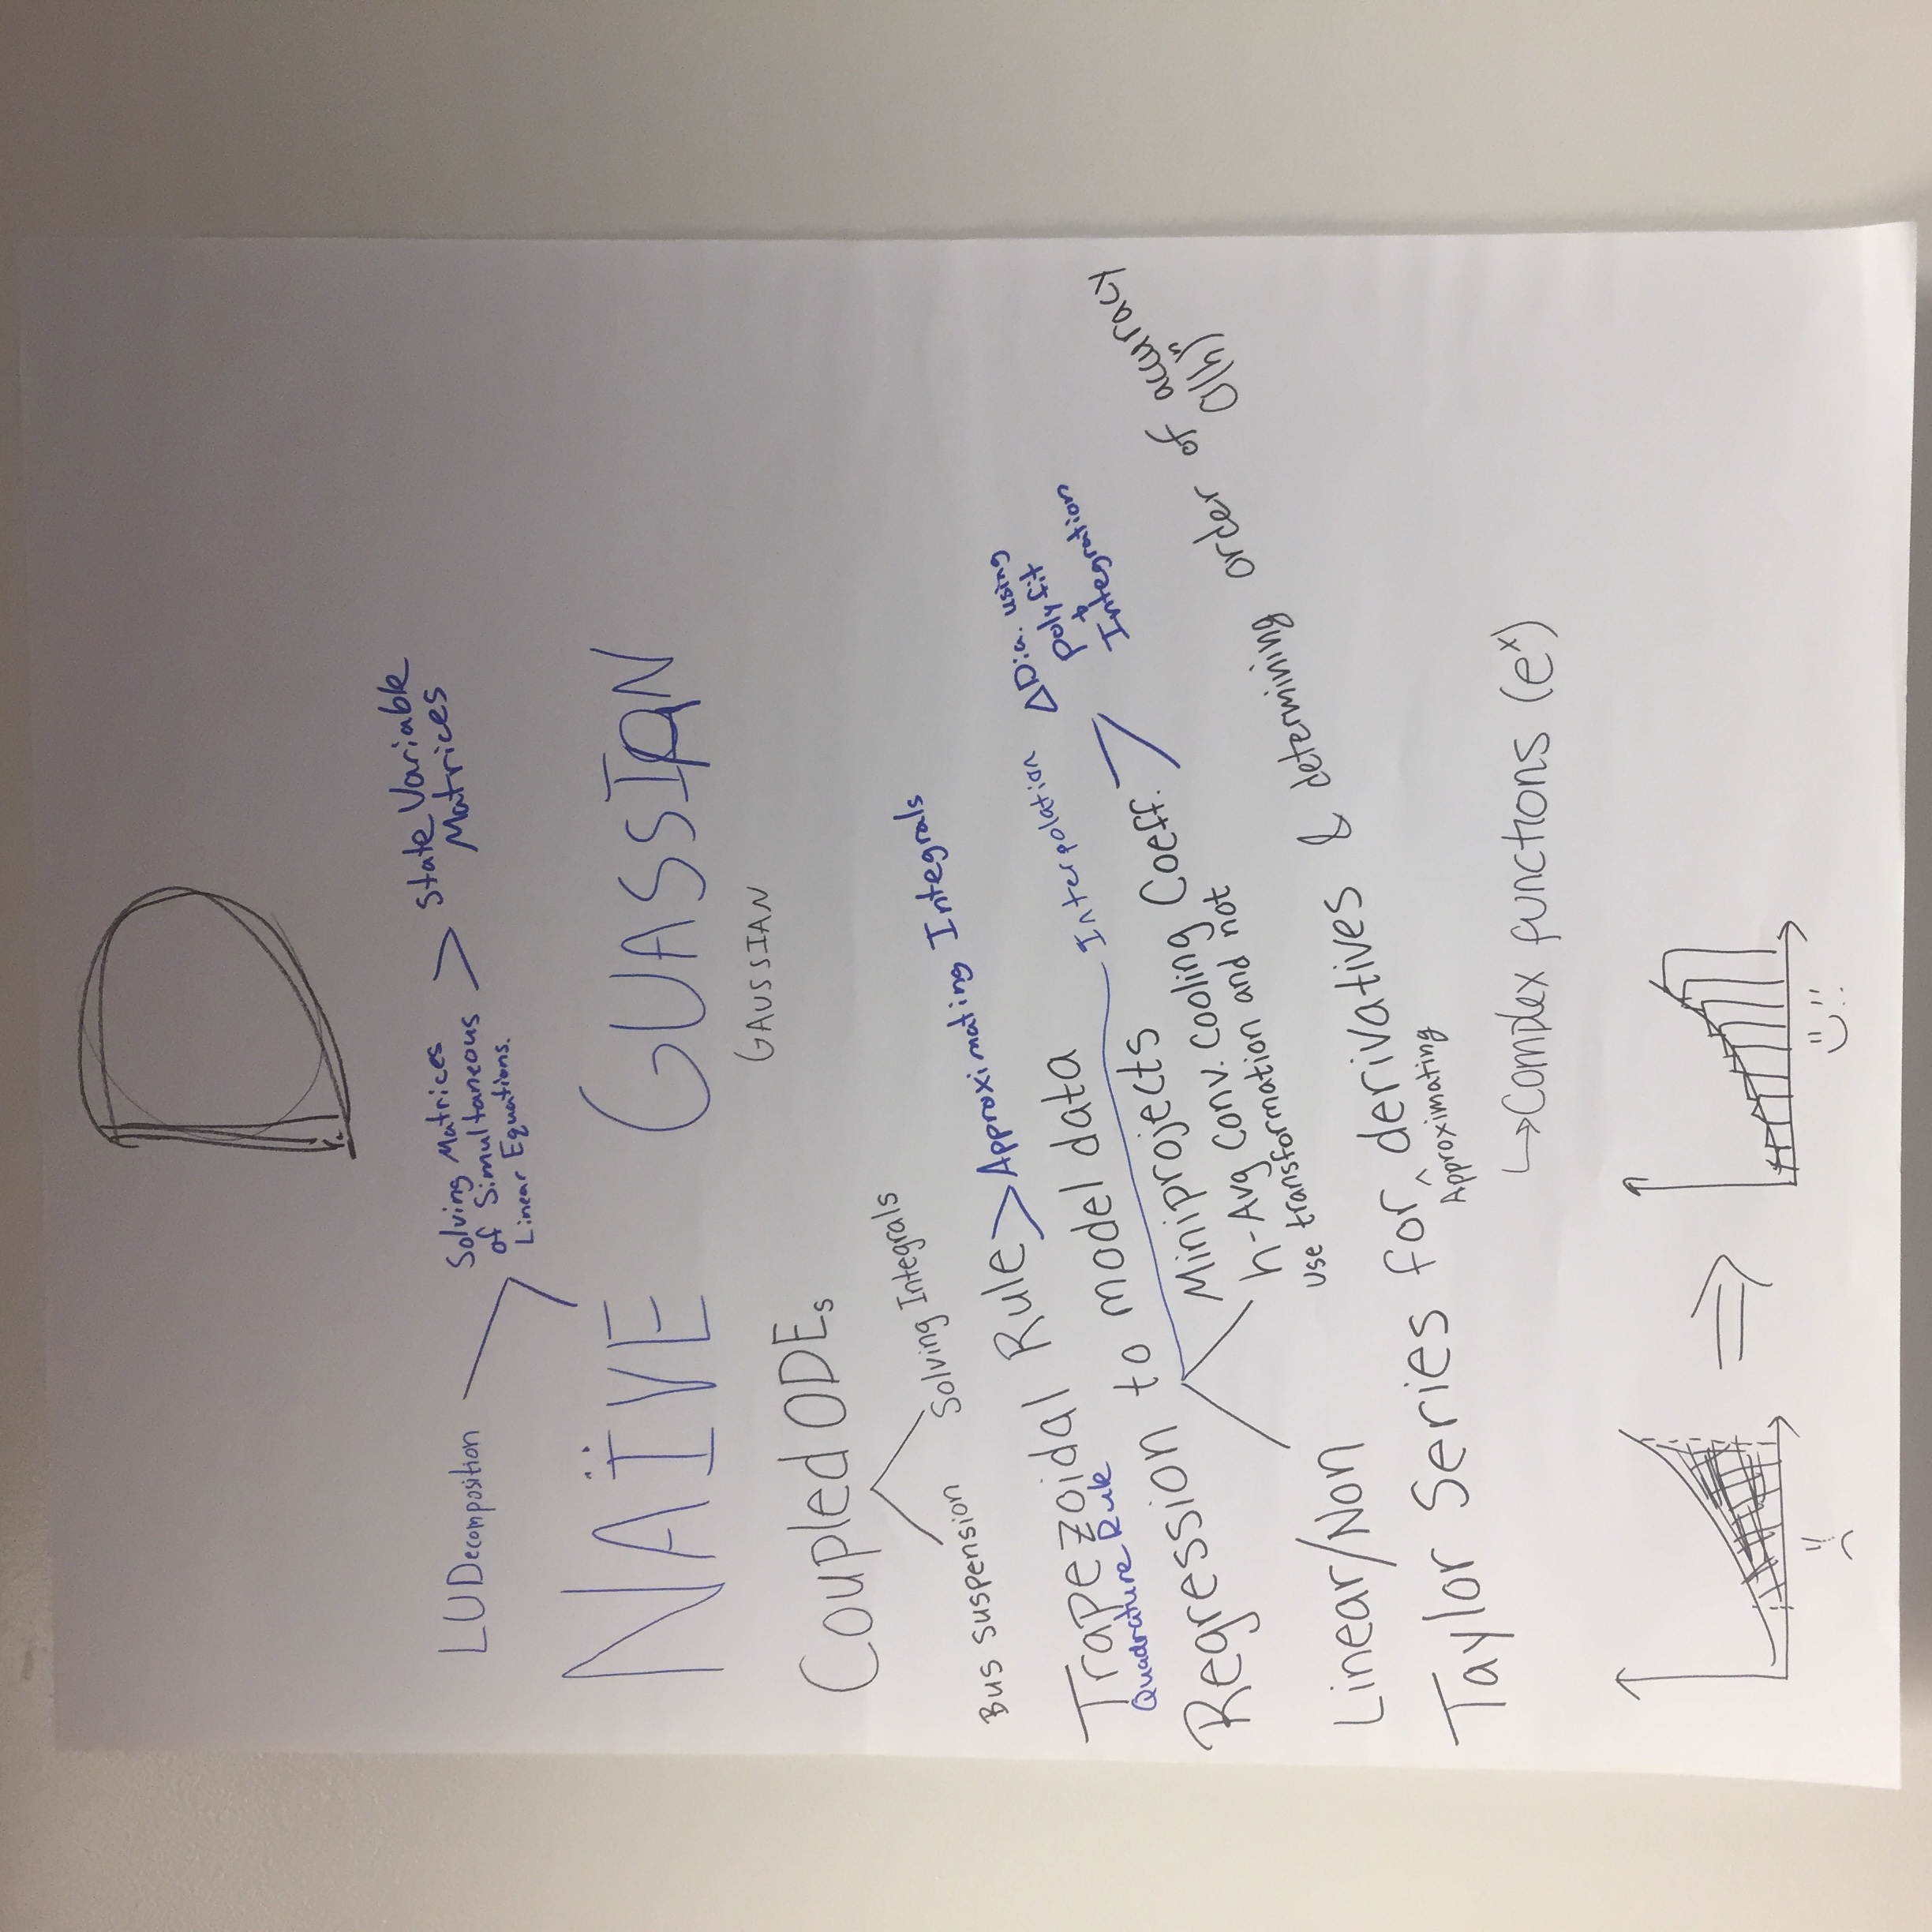 D
LU Decomposition
Solving Matrices
of Simultaneous
Linear Equations.
> State Variable
Matrices
NAÏVE GUASSIAN
GAUSSIAN
Coupled ODEs
Bus suspension
Solving Integrals
Trapezoidal Rule > Approximating Integrals
Quadrature Rule
Regression to model data
Interpolation
ΔDia. using
polyfit
+
Integration
Linear/Non
Miniprojects
h-Avg Conv. Cooling Coeff.
use transformation and not
Taylor Series for ^ derivatives & determining order of accuracy
Approximating
O(hⁿ)
↳ Complex functions (eˣ)
⇒